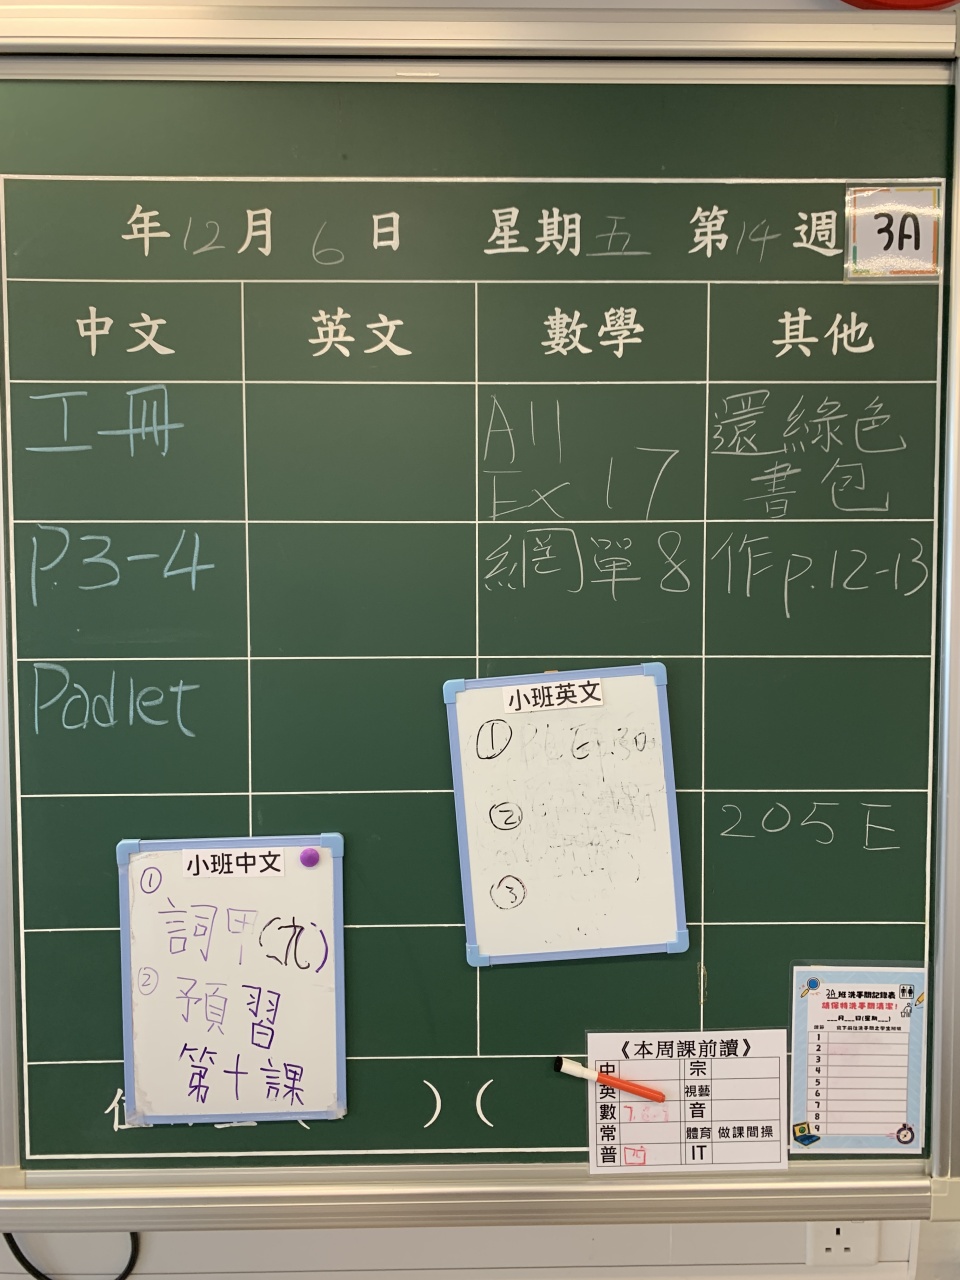 年12月6日 星期五 第14週
3A
中文 英文 數學 其他
工冊
P.3-4
Padlet
All
Ex 17
網單8
還綠色
書包
作p.12-13
205E
小班英文
①
②
③
小班中文
①
詞甲(九)
②
預習
第十課
)(
《本周課前讀》
中 宗
英 視藝
數 音
常 體育 做課間操
普 IT
3A班洗手間記錄表
請保持洗手間清潔！
___月___日(星期___)
1
2
3
4
5
6
7
8
9